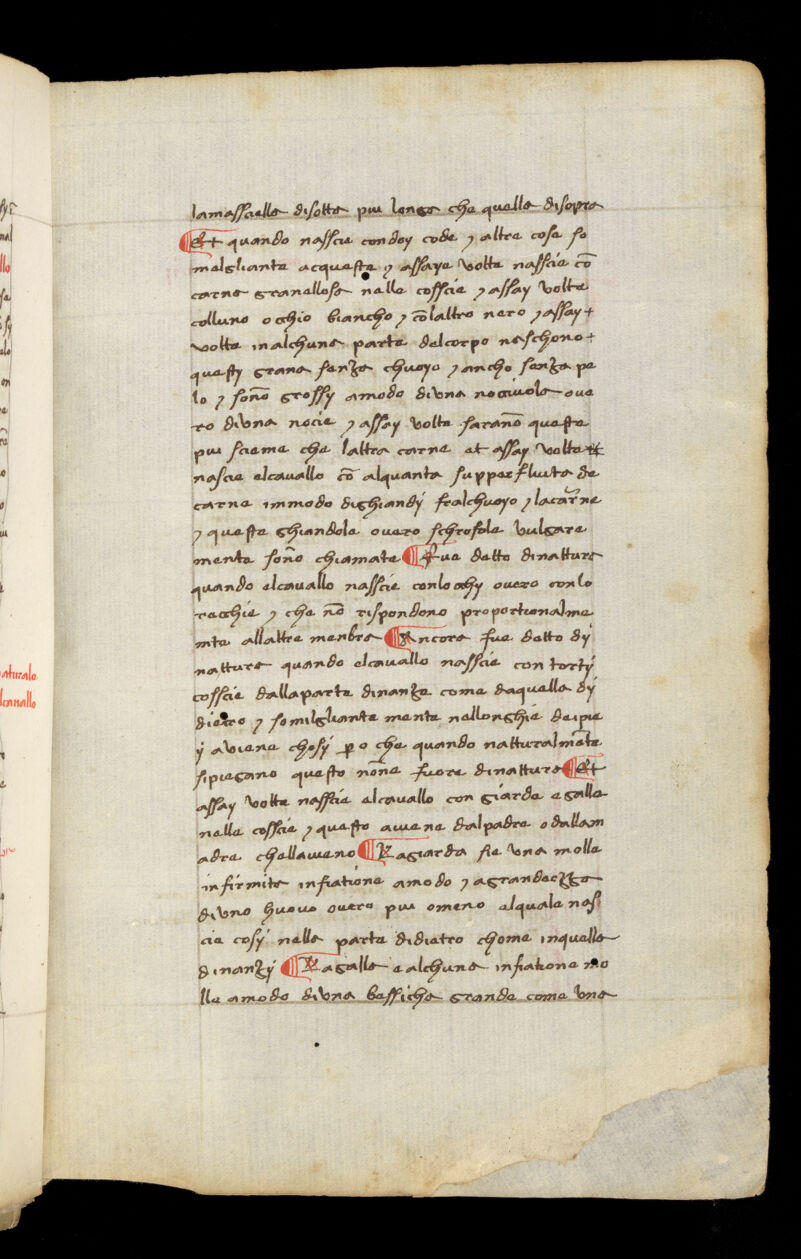 lamasscella disotta piu longa che quella disopra
Et quando nasscie condoy code ⁊ altre cose so
melgliante acqueste ⁊ assaye volte nasscie cō
carne granellosa nelle cosscie ⁊ assay volte
colluno occhio biancho ⁊ cōlaltro nero ⁊ assay
volte inalchuna parte delcorpo neschono
questy grana senza chuoyo ⁊ ancho senza pe
lo ⁊ sonō grossy amodo diuna nociuola oue
ro diuna nocie ⁊ assay volte saranō queste
piu scieme che laltra carne et assay volte
nascie elcauallo cō alquanta supperfluita de
carne immodo dighiandy fralchuoyo ⁊ lacarne
⁊ queste ghiandole ouero schrofole vulgare
mente sonō chiamate Fue detto dinatture
quando elcauallo nasscie conlochy ouero conlo
recchie ⁊ che nō rispondono proportionalme
nte allaltre menbre Ancora fue detto dy
natture quando elcauallo nasscie con torty
cosscie dallaparte dinanze come daquella dy
dietro ⁊ somilgliante mente nellonghie deipie
y aviene chosy ꝑo che quando natturalmēte
sipiegano questo nōne fuore dinatture Et
assay volte nasscie elcauallo con giarde egalle
nelle cosscie ⁊ questo auiene dalpadre odallam
adre chellaueno Lagiarda sie vna molle
infirmita infiatione amodo ⁊ agrandeçze
diuno huouo ouero piu omeno alquale nas
cie cosy nella parte didietro chome inquella
dinanzy Lagalla e alchuna infiatione mo
lle amodo diuna bessicha grande come vna